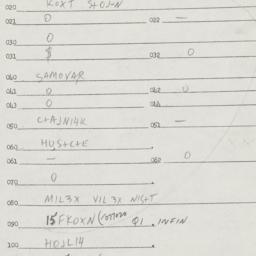 020 KOXT STOJ-N
021 0 022 —
030 0
031 $ 032 0
040 SAMOVAR
041 0 042 0
043 0 044
050 C+AJNI4K 051 —
060 HUS+C+E
061 — 062 0
070 0
080 MIL3X VIL3X NIS+T
090 15 FROXN QI. INFIN
100 HOJL14